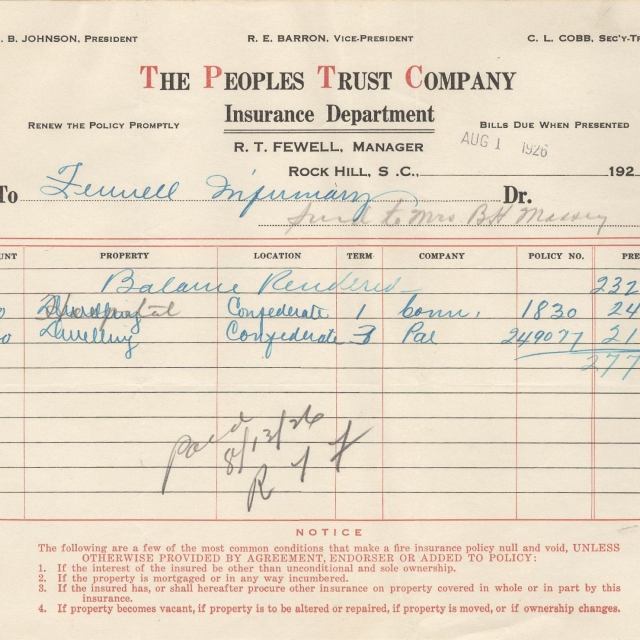 . B. JOHNSON, PRESIDENT R. E. BARRON, VICE-PRESIDENT C. L. COBB, SEC'Y-TR
THE PEOPLES TRUST COMPANY
Insurance Department
RENEW THE POLICY PROMPTLY BILLS DUE WHEN PRESENTED
R. T. FEWELL, MANAGER AUG 1 1926
ROCK HILL, S .C., 192
To Fennell Infirmary Dr.
Send to Mrs B H Massey
UNT PROPERTY LOCATION TERM COMPANY POLICY NO. PRE
Balance Rendered 232
0 Hospital Confederate 1 Conn. 1830 24
0 Dwelling Confederate 3 Pal 249077 21
277
Paid
8/13/26
R T F
NOTICE
The following are a few of the most common conditions that make a fire insurance policy null and void, UNLESS
OTHERWISE PROVIDED BY AGREEMENT, ENDORSER OR ADDED TO POLICY:
1. If the interest of the insured be other than unconditional and sole ownership.
2. If the property is mortgaged or in any way incumbered.
3. If the insured has, or shall hereafter procure other insurance on property covered in whole or in part by this
insurance.
4. If property becomes vacant, if property is to be altered or repaired, if property is moved, or if ownership changes.